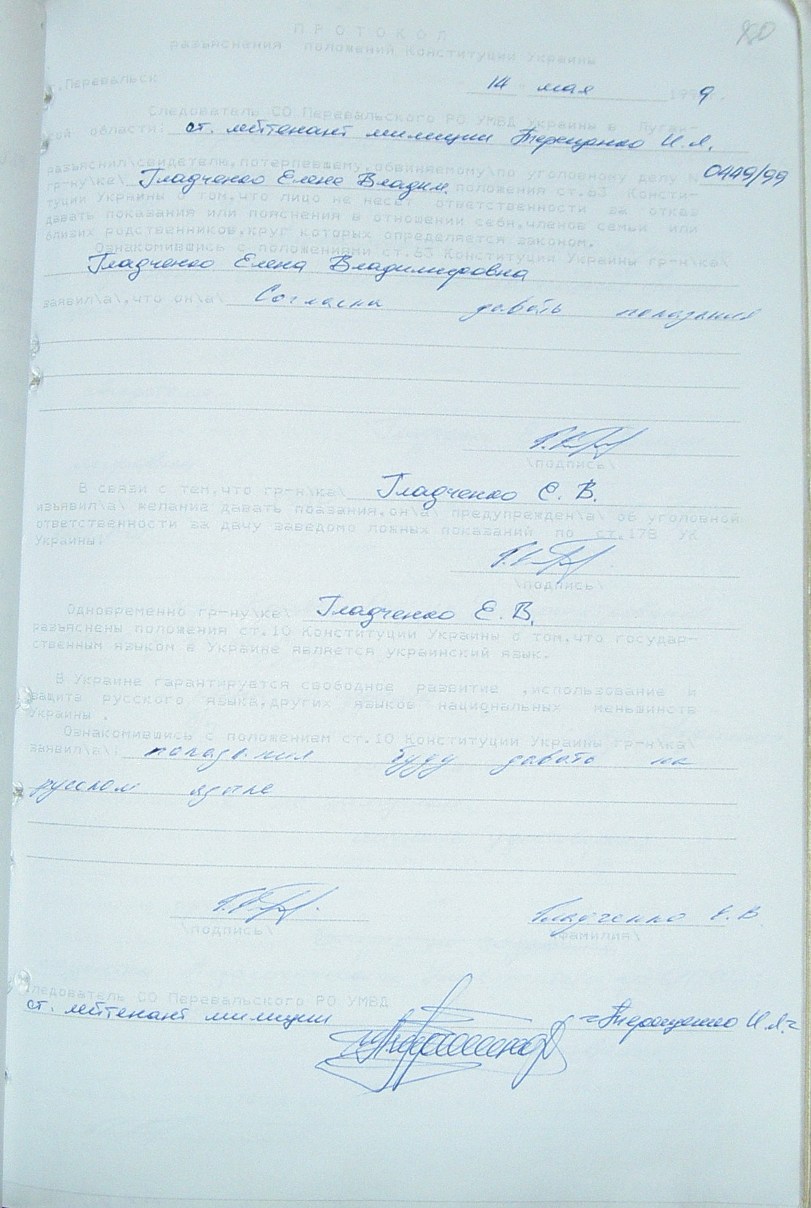 ПРОТОКОЛ
разъяснения положений Конституции Украины
г.Перевальск 14 мая 1999.
Следователь СО Перевальского РО УМВД Украины в Луган-
кой области: ст. лейтенант милиции Терещенко И.Л.
разъяснил\свидетелю,потерпевшему,обвиняемому\по уголовному делу № 0449/99
гр-ну\ке\ Гладченко Елене Владим. положения ст.63 Консти-
туции Украины о том,что лицо не несет ответственности за отказ
давать показания или пояснения в отношении себя,членов семьи или
близих родственников,круг которых определяется законом.
Ознакомившись с положениями ст.63 Конституция Украины гр-н\ка\
Гладченко Елена Владимировна
заявил\а\,что он\а\ Согласна давать показания
\подпись\
В связи с тем,что гр-н\ка\ Гладченко Е. В.
изъявил\а\ желание давать поазания,он\а\ предупрежден\а\ об уголовной
ответственности за дачу заведомо ложных показаний по ст.178 УК
Украины:
\подпись\
Одновременно гр-ну\ке\ Гладченко Е. В.
разъяснены положения ст.10 Конституции Украины о том,что государ-
ственным языком в Украине является украинский язык.
В Украине гарантируется свободное развитие ,использование и
защита русского языка,других языков национальных меньшинств
Украины .
Ознакомившись с положением ст.10 Конституции Украины гр-н\ка\
заявил\а\: показания буду давать на
русском языке
Гладченко Е. В
\подпись\ \фамилия\
Следователь СО Перевальского РО УМВД
ст. лейтенант милиции Терещенко И.Л.